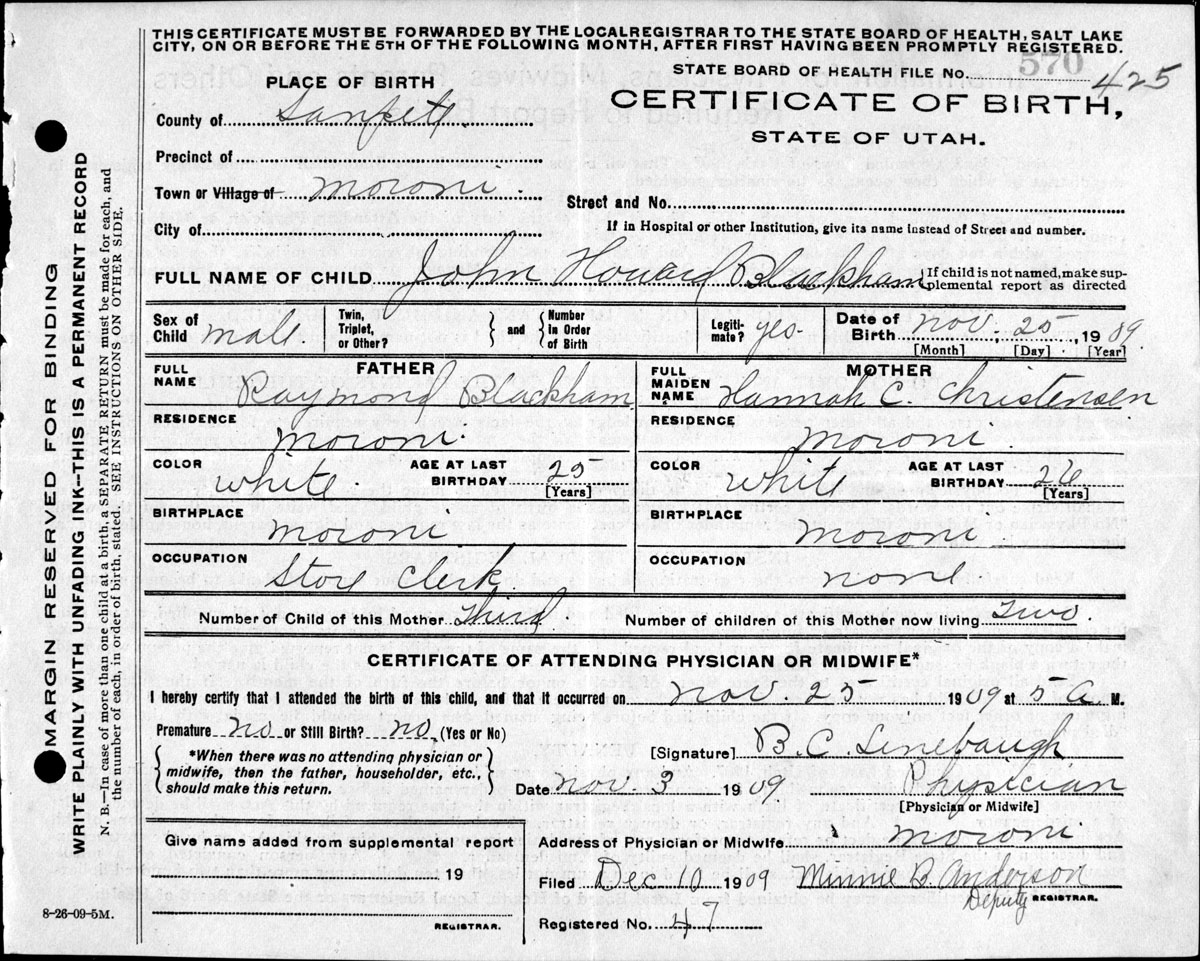 THIS CERTIFICATE MUST BE FORWARDED BY THE LOCAL REGISTRAR TO THE STATE BOARD OF HEALTH, SALT LAKE
CITY, ON OR BEFORE THE 5TH OF THE FOLLOWING MONTH, AFTER FIRST HAVING BEEN PROMPTLY REGISTERED.
STATE BOARD OF HEALTH FILE No. 570 425
PLACE OF BIRTH
CERTIFICATE OF BIRTH,
STATE OF UTAH.
County of Sanpete
Precinct of
Town or Village of Moroni.
Street and No.
City of
If in Hospital or other Institution, give its name instead of Street and number.
FULL NAME OF CHILD John Howard Blackham { If child is not named, make sup-
plemental report as directed
Sex of Child male Twin, Triplet, or Other? } and { Number In Order of Birth Legiti-mate? yes Date of Birth Nov. 25, 1909
[Month] [Day] [Year]
FATHER MOTHER
FULL NAME Raymond Blackham FULL MAIDEN NAME Hannah C. Christensen
RESIDENCE Moroni. RESIDENCE Moroni.
COLOR white. AGE AT LAST BIRTHDAY 25 [Years] COLOR white AGE AT LAST BIRTHDAY 26 [Years]
BIRTHPLACE Moroni. BIRTHPLACE Moroni.
OCCUPATION Store Clerk OCCUPATION none
Number of Child of this Mother Third Number of children of this Mother now living Two.
CERTIFICATE OF ATTENDING PHYSICIAN OR MIDWIFE*
I hereby certify that I attended the birth of this child, and that it occurred on Nov. 25 1909 at 5 a M.
Premature no or Still Birth? no. (Yes or No)
[Signature] B. C. Linebaugh
{ *When there was no attending physician or
midwife, then the father, householder, etc.,
should make this return. }
Date Nov. 3 1909 Physician
[Physician or Midwife]
Give name added from supplemental report
19
REGISTRAR.
Address of Physician or Midwife Moroni
Filed Dec 10 1909 Minnie B. Anderson
Deputy REGISTRAR.
Registered No. 47
8-26-09-5M.
MARGIN RESERVED FOR BINDING
WRITE PLAINLY WITH UNFADING INK--THIS IS A PERMANENT RECORD
N. B.—In case of more than one child at a birth, a SEPARATE RETURN must be made for each, and
the number of each, in order of birth, stated. SEE INSTRUCTIONS ON OTHER SIDE.